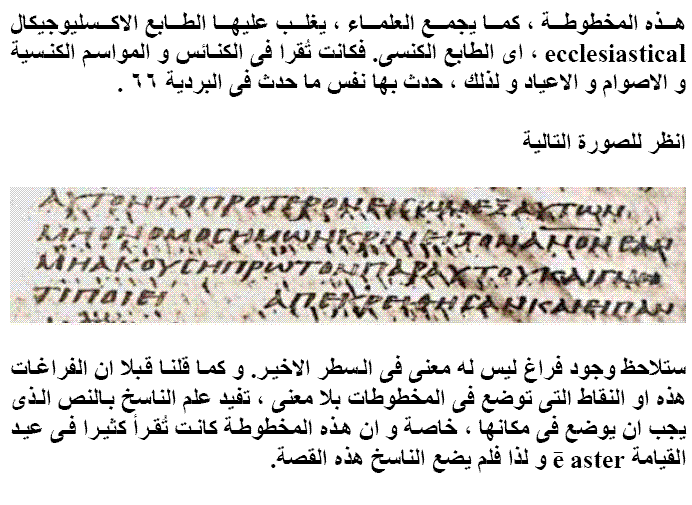 هذه المخطوطة ، كما يجمع العلماء ، يغلب عليها الطابع الاكسليوجيكال
ecclesiastical ، اى الطابع الكنسى. فكانت تُقرا فى الكنائس و المواسم الكنسية
و الاصوام و الاعياد و لذلك ، حدث بها نفس ما حدث فى البردية ٦٦ .
انظر للصورة التالية
ΑΥΤΟΝΤΟΠΡΟΤΕΡΟΝΕΙΣΩΝΕΞΑΥΤΩΝ
ΜΗΟΝΟΜΟΣΗΜΩΝΚΡΙΝΕΙΤΟΝΑΝΟΝΕΑΝ
ΜΗΑΚΟΥΣΗΠΡΩΤΟΝΠΑΡΑΥΤΟΥΚΑΙΓΝΩ
ΤΙΠΟΙΕΙ ΑΠΕΚΡΕΙΘΗΣΑΝΚΑΙΕΙΠΑΝ
ستلاحظ وجود فراغ ليس له معنى فى السطر الاخير. و كما قلنا قبلا ان الفراغات
هذه او النقاط التى توضع فى المخطوطات بلا معنى ، تفيد علم الناسخ بالنص الذى
يجب ان يوضع فى مكانها ، خاصة و ان هذه المخطوطة كانت تُقرأ كثيرا فى عيد
القيامة ē aster و لذا فلم يضع الناسخ هذه القصة.